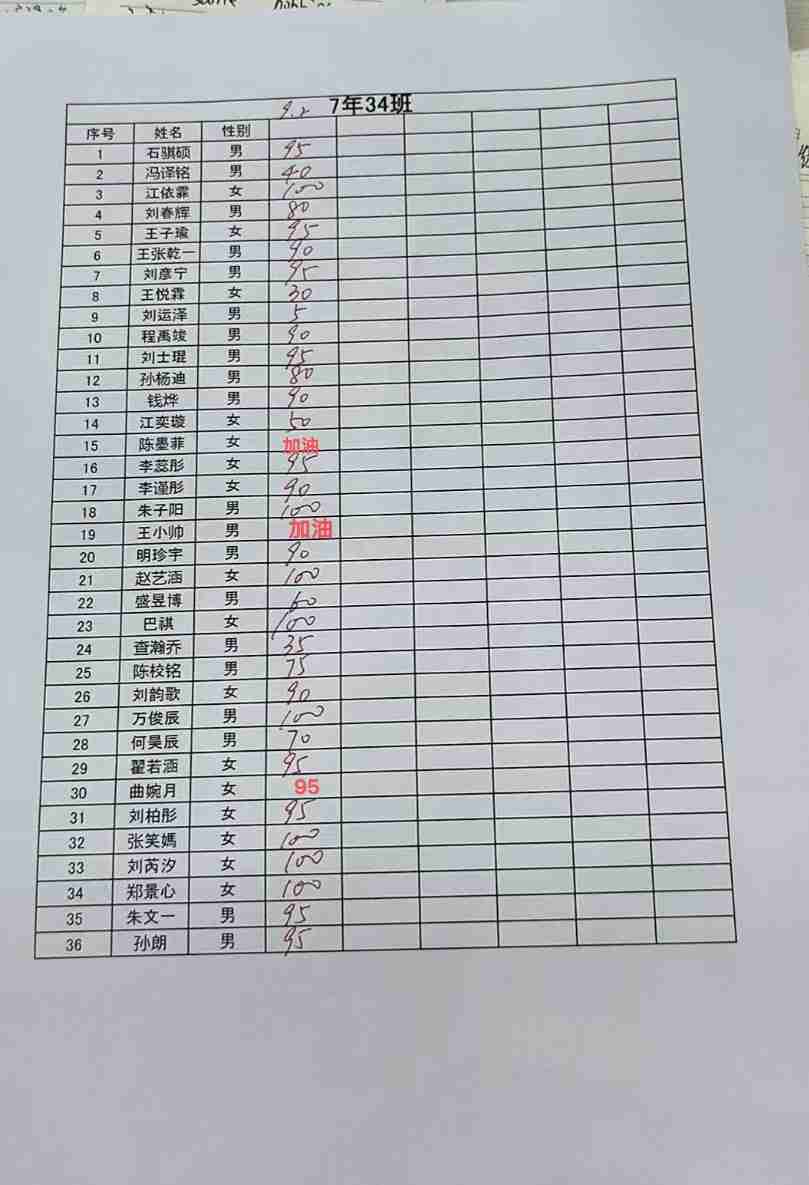 9.2 7年34班
序号 姓名 性别
1 石骐硕 男 95
2 冯译铭 男 40
3 江依霏 女 100
4 刘春辉 男 80
5 王子瑜 女 95
6 王张乾一 男 90
7 刘彦宁 男 95
8 王悦霖 女 30
9 刘运泽 男 5
10 程禹竣 男 90
11 刘士琨 男 95
12 孙杨迪 男 80
13 钱烨 男 90
14 江奕璇 女 50
15 陈墨菲 女 加油
16 李蕊彤 女 95
17 李谨彤 女 90
18 朱子阳 男 100
19 王小帅 男 加油
20 明珍宇 男 90
21 赵艺涵 女 100
22 盛昱博 男 60
23 巴祺 女 100
24 查瀚乔 男 35
25 陈校铭 男 75
26 刘韵歌 女 90
27 万俊辰 男 100
28 何昊辰 男 70
29 翟若涵 女 95
30 曲婉月 女 95
31 刘柏彤 女 95
32 张笑嫣 女 100
33 刘芮汐 女 100
34 郑景心 女 100
35 朱文一 男 95
36 孙朗 男 95